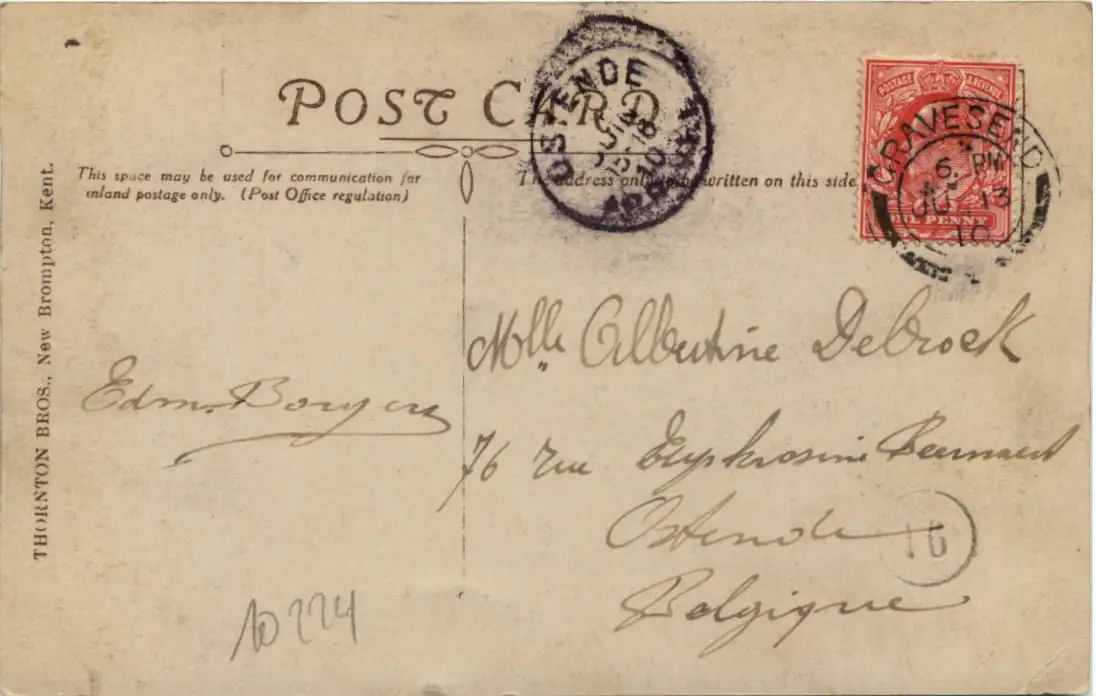 POST CARD
This space may be used for communication for
inland postage only. (Post Office regulation)
The address only written on this side
THORNTON BROS., New Brompton, Kent.
OSTENDE
POSTAGE REVENUE
ONE PENNY
GRAVESEND
6. PM
JU 13
10
Edm.
Melle Albertine Debrock
76 rue Euphrosine Beernaert
Ostende
Belgique
16
10224